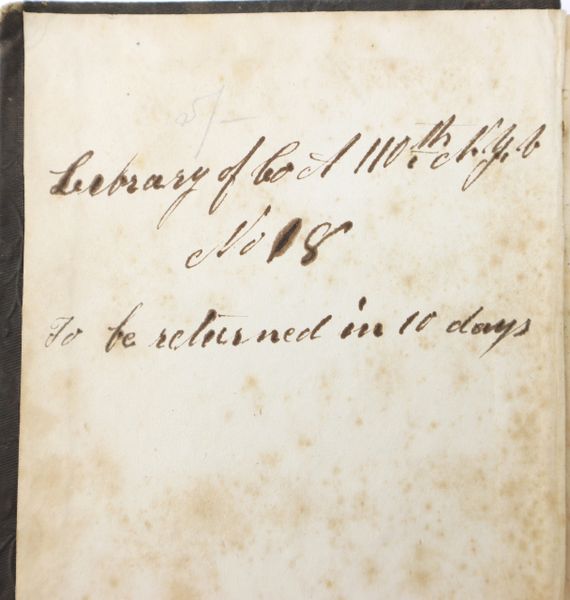 25/-
Library of Co A 110th N.Y.
No 18
To be returned in 10 days